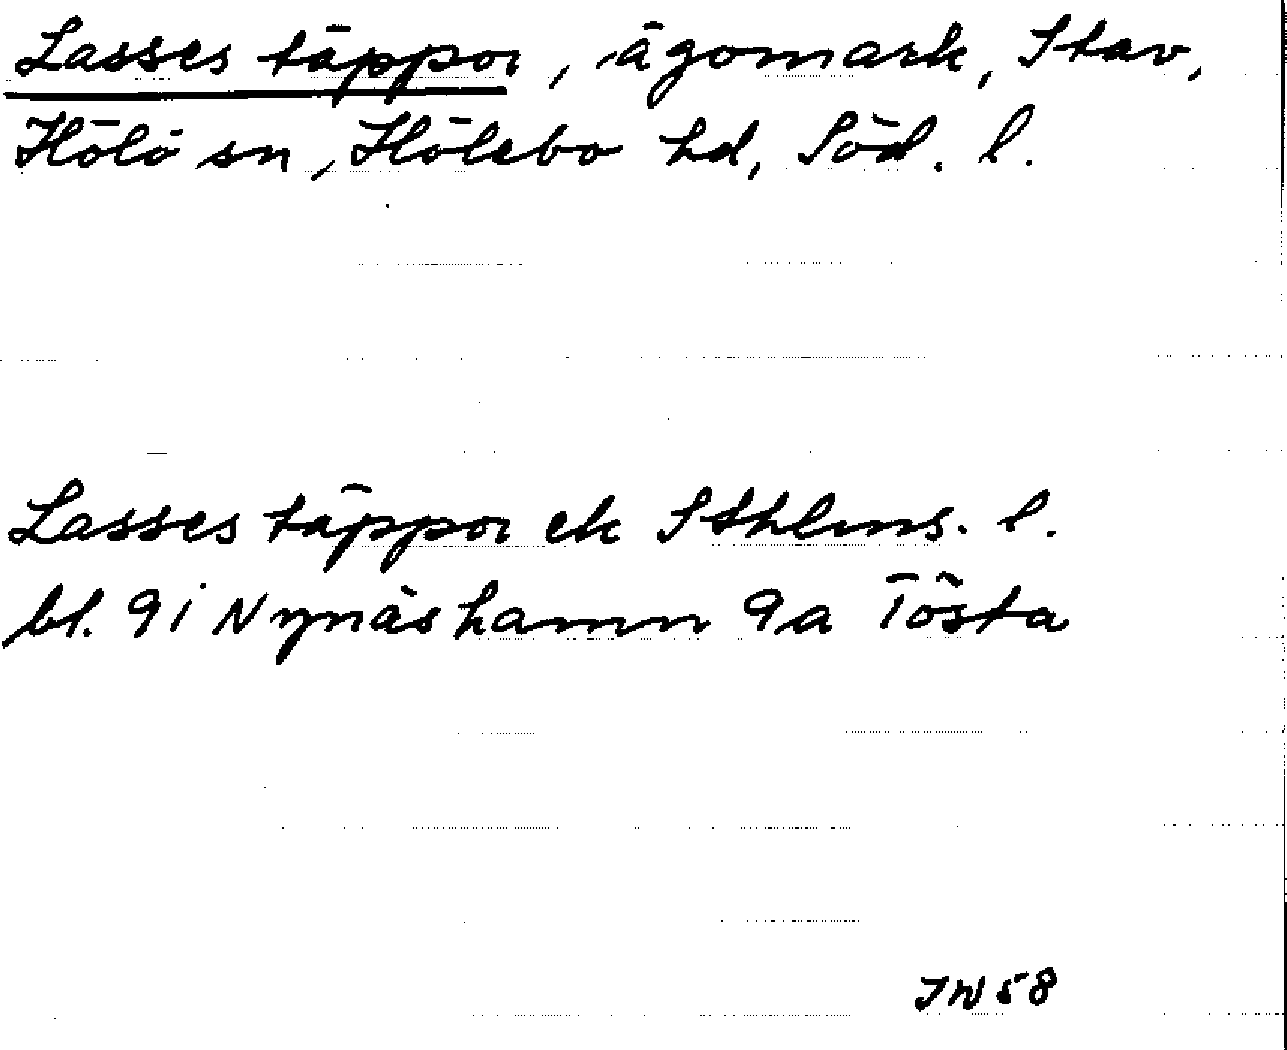 Lasses täppor, ägomark, Stav,
Hölö sn, Hölebo hd, Söd. l.
Lasses täppor ek Sthlms. l.
bl. 9i Nynäshamn 9a Tösta
JW 58